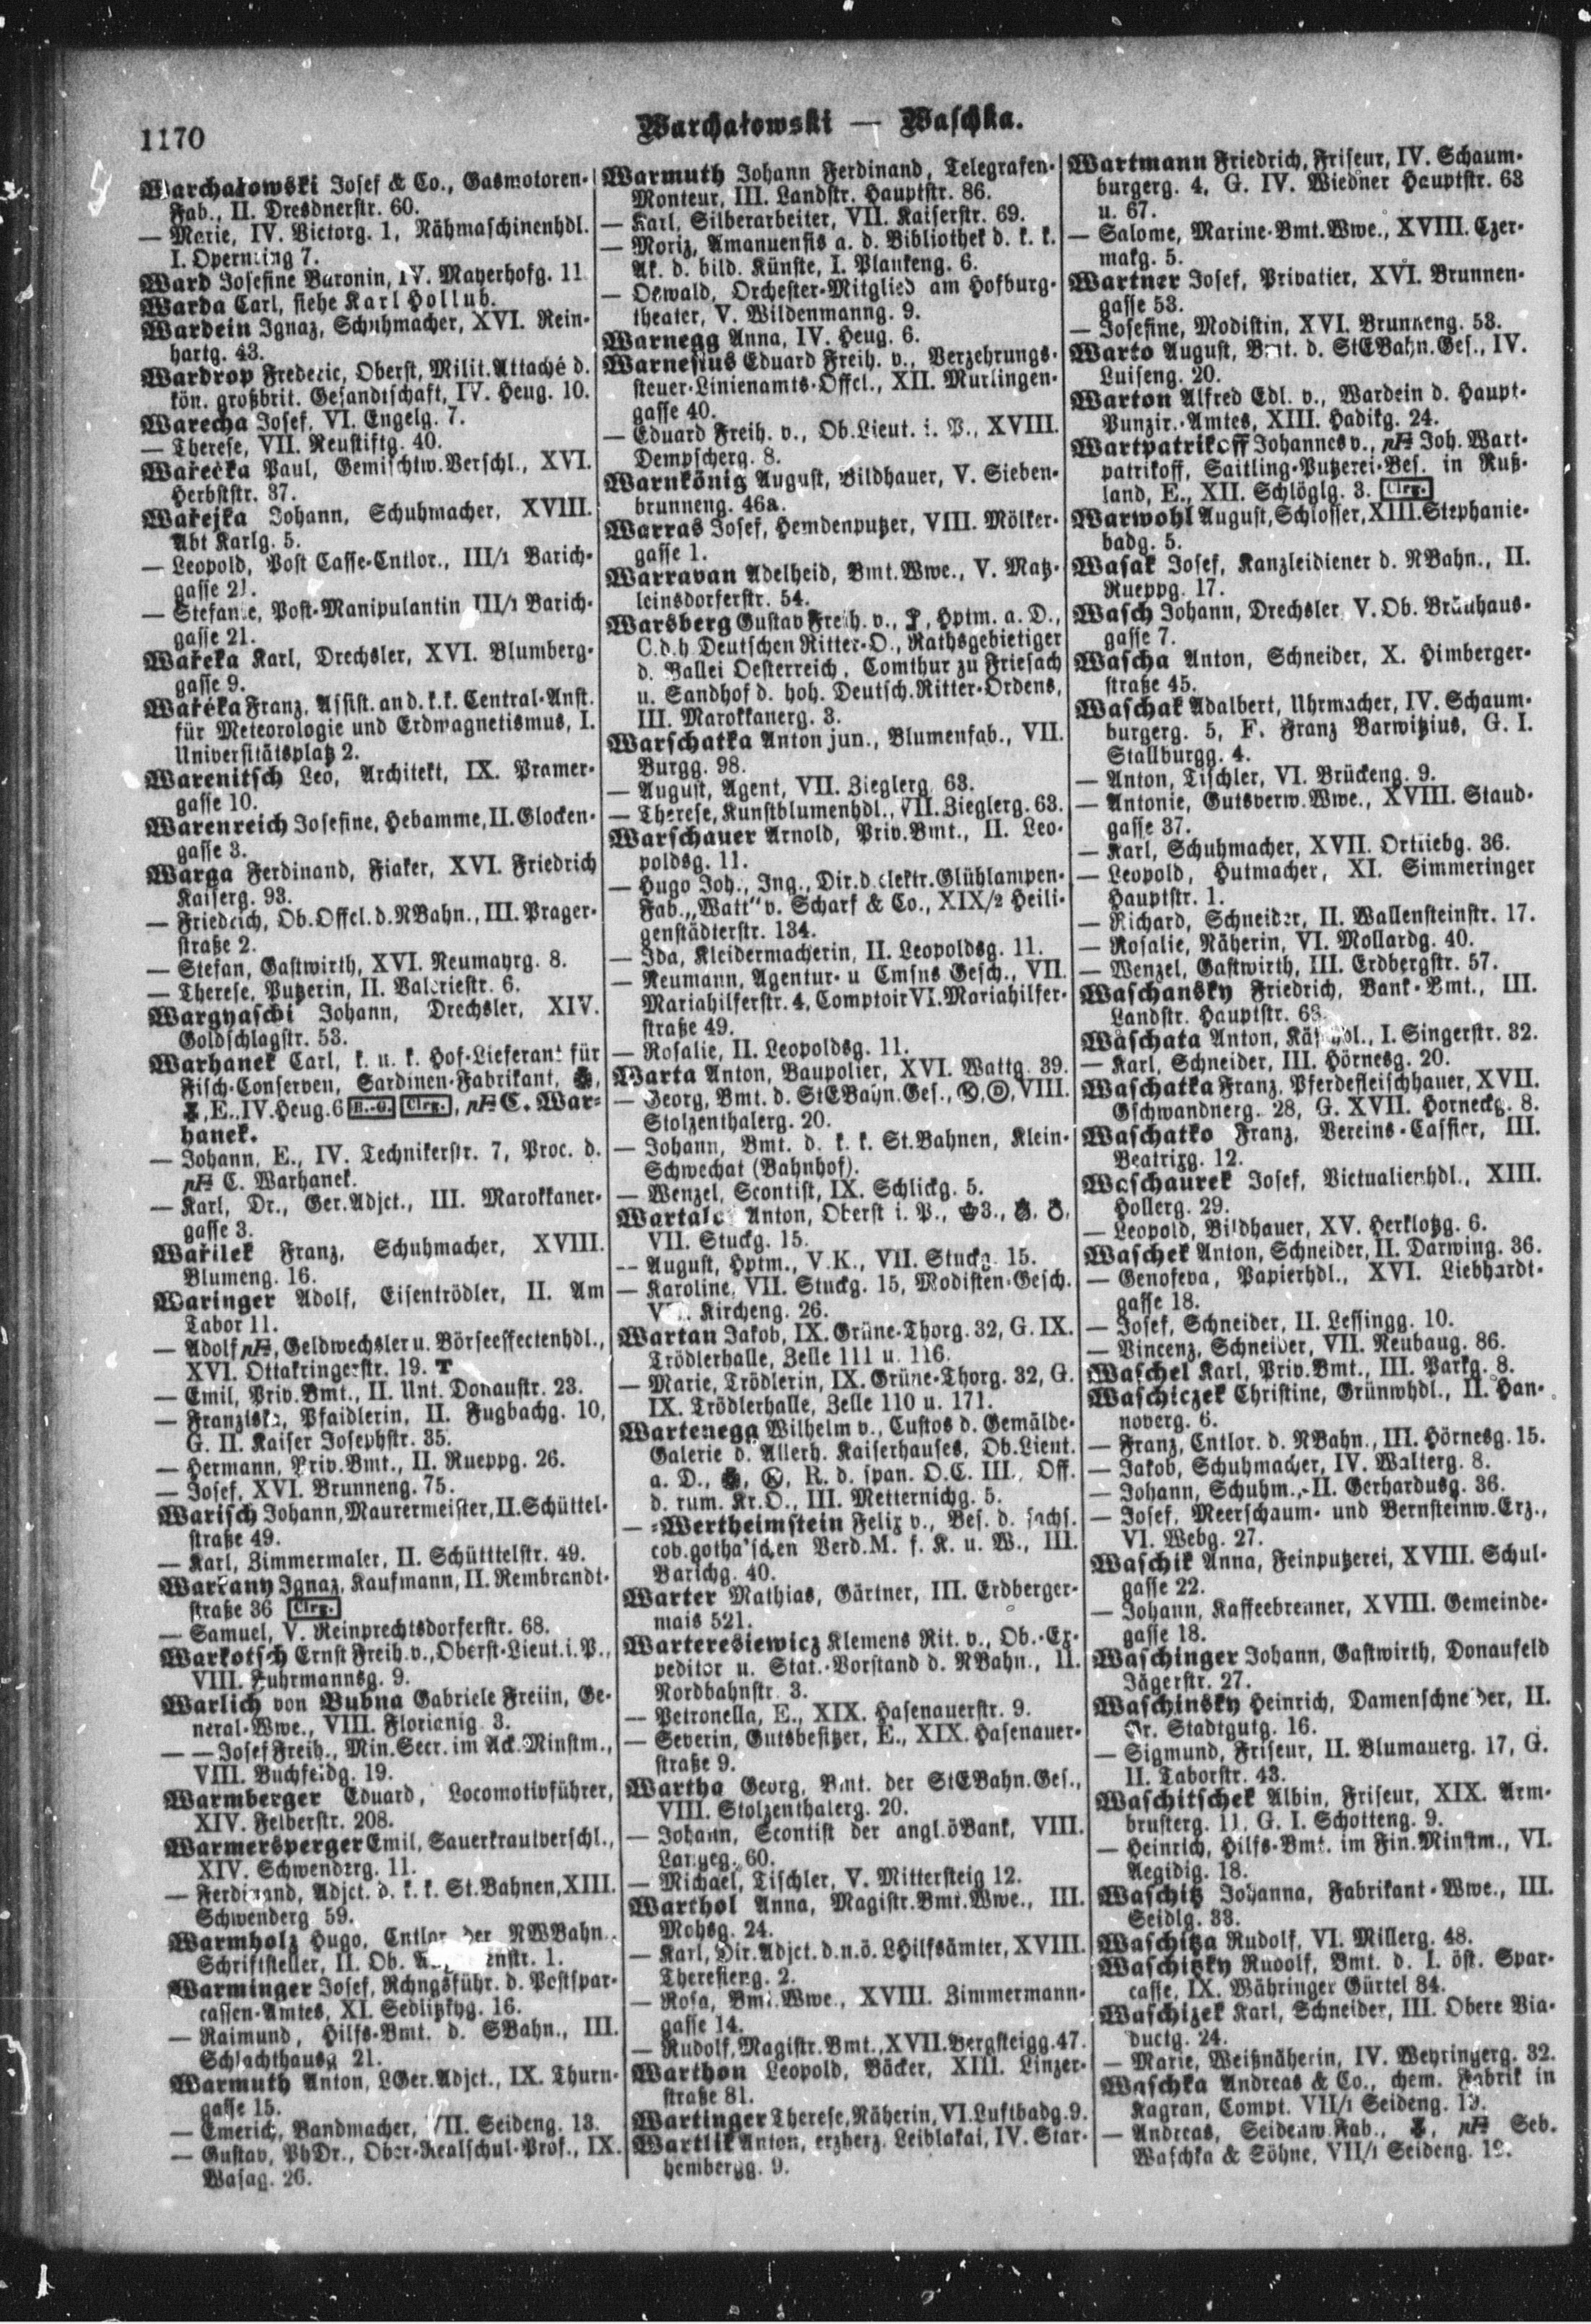 1170
Warchałowski — Waschka.
Warchałowski Josef & Co., Gasmotoren-
Fab., II. Dresdnerstr. 60.
— Marie, IV. Victorg. 1, Nähmaschinenhdl.
I. Opernring 7.
Ward Josefine Baronin, IV. Mayerhofg. 11
Warda Carl, siehe Karl Hollub.
Wardein Ignaz, Schuhmacher, XVI. Rein-
hartg. 43.
Wardrop Frederic, Oberst, Milit. Attaché d.
kön. großbrit. Gesandtschaft, IV. Heug. 10.
Warecha Josef, VI. Engelg. 7.
— Therese, VII. Neustiftg. 40.
Wařečka Paul, Gemischtw. Verschl., XVI.
Herbststr. 37.
Wařejka Johann, Schuhmacher, XVIII.
Abt Karlg. 5.
— Leopold, Post Casse-Cntlor., III/1 Barich-
gasse 21.
— Stefanie, Post-Manipulantin III/1 Barich-
gasse 21.
Wařeka Karl, Drechsler, XVI. Blumberg-
gasse 9.
Wařeka Franz, Assist. an d. k. k. Central-Anst.
für Meteorologie und Erdmagnetismus, I.
Universitätsplatz 2.
Warenitsch Leo, Architekt, IX. Pramer-
gasse 10.
Warenreich Josefine, Hebamme, II. Glocken-
gasse 3.
Warga Ferdinand, Fiaker, XVI. Friedrich
Kaiserg. 93.
— Friedrich, Ob. Offcl. d. NBahn., III. Prager-
straße 2.
— Stefan, Gastwirth, XVI. Neumayrg. 8.
— Therese, Putzerin, II. Valeriestr. 6.
Wargyaschi Johann, Drechsler, XIV.
Goldschlagstr. 53.
Warhanek Carl, k. u. k. Hof-Lieferant für
Fisch-Conserven, Sardinen-Fabrikant,
, E., IV. Heug. 6 B.-G. Clrg., C. War-
hanek.
— Johann, E., IV. Technikerstr. 7, Proc. d.
C. Warhanek.
— Karl, Dr., Ger. Adjct., III. Marokkaner-
gasse 3.
Wařilek Franz, Schuhmacher, XVIII.
Blumeng. 16.
Waringer Adolf, Eisentrödler, II. Am
Tabor 11.
— Adolf, Geldwechsler u. Börseeffectenhdl.,
XVI. Ottakringerstr. 19. T
— Emil, Priv. Bmt., II. Unt. Donaustr. 23.
— Franziska, Pfaidlerin, II. Fugbachg. 10,
G. II. Kaiser Josephstr. 35.
— Hermann, Priv. Bmt., II. Rueppg. 26.
— Josef, XVI. Brunneng. 75.
Warisch Johann, Maurermeister, II. Schüttel-
straße 49.
— Karl, Zimmermaler, II. Schütttelstr. 49.
Warjany Ignaz, Kaufmann, II. Rembrandt-
straße 36 Clrg.
— Samuel, V. Reinprechtsdorferstr. 68.
Warkotsch Ernst Freih. v., Oberst-Lieut. i. P.,
VIII. Fuhrmannsg. 9.
Warlich von Bubna Gabriele Freiin, Ge-
neral-Wwe., VIII. Florianig. 3.
— — Josef Freih., Min. Secr. im Ack. Minstm.,
VIII. Buchfeldg. 19.
Warmberger Eduard, Locomotivführer,
XIV. Felberstr. 208.
Warmersperger Emil, Sauerkrautverschl.,
XIV. Schwenderg. 11.
— Ferdinand, Adjct. d. k. k. St. Bahnen, XIII.
Schwenderg 59.
Warmholz Hugo, Cntlor der NWBahn.
Schriftsteller, II. Ob. 1.
Warminger Josef, Rchngsführ. d. Postspar-
cassen-Amtes, XI. Sedlitzkyg. 16.
— Raimund, Hilfs-Bmt. d. SBahn., III.
Schlachthausg 21.
Warmuth Anton, LGer. Adjct., IX. Thurn-
gasse 15.
— Emerich, Bandmacher, VII. Seideng. 13.
— Gustav, PhDr., Ober-Realschul-Prof., IX.
Wasag. 26.
Warmuth Johann Ferdinand, Telegrafen-
Monteur, III. Landstr. Hauptstr. 86.
— Karl, Silberarbeiter, VII. Kaiserstr. 69.
— Moriz, Amanuensis a. d. Bibliothek d. k. k.
Ak. d. bild. Künste, I. Plankeng. 6.
— Oswald, Orchester-Mitglied am Hofburg-
theater, V. Wildenmanng. 9.
Warnegg Anna, IV. Heug. 6.
Warnesius Eduard Freih. v., Verzehrungs-
steuer-Linienamts-Offcl., XII. Murlingen-
gasse 40.
— Eduard Freih. v., Ob. Lieut. i. P., XVIII.
Dempscherg. 8.
Warnkönig August, Bildhauer, V. Sieben-
brunneng. 46a.
Warras Josef, Hemdenputzer, VIII. Mölker-
gasse 1.
Warravan Adelheid, Bmt. Wwe., V. Matz-
leinsdorferstr. 54.
Warsberg Gustav Freih. v., , Hptm. a. D.,
C. d. h Deutschen Ritter-O., Rathsgebietiger
d. Ballei Oesterreich, Comthur zu Friesach
u. Sandhof d. hoh. Deutsch. Ritter-Ordens,
III. Marokkanerg. 3.
Warschatka Anton jun., Blumenfab., VII.
Burgg. 98.
— August, Agent, VII. Zieglerg. 63.
— Therese, Kunstblumenhdl., VII. Zieglerg. 63.
Warschauer Arnold, Priv. Bmt., II. Leo-
poldsg. 11.
— Hugo Joh., Ing., Dir. d. elektr. Glühlampen-
Fab. „Watt" v. Scharf & Co., XIX/2 Heili-
genstädterstr. 134.
— Ida, Kleidermacherin, II. Leopoldsg. 11.
— Neumann, Agentur- u Cmsns Gesch., VII.
Mariahilferstr. 4, Comptoir VI. Mariahilfer-
straße 49.
— Rosalie, II. Leopoldsg. 11.
Warta Anton, Baupolier, XVI. Wattg. 39.
— Georg, Bmt. d. StEBahn. Ges., , VIII.
Stolzenthalerg. 20.
— Johann, Bmt. d. k. k. St. Bahnen, Klein-
Schwechat (Bahnhof).
— Wenzel, Scontist, IX. Schlickg. 5.
Anton, Oberst i. P., 3.,
VII. Stuckg. 15.
— August, Hptm., V. K., VII. Stuckg. 15.
— Karoline, VII. Stuckg. 15, Modisten-Gesch.
Kircheng. 26.
Wartan Jakob, IX. Grüne-Thorg. 32, G. IX.
Trödlerhalle, Zelle 111 u. 116.
— Marie, Trödlerin, IX. Grüne-Thorg. 32, G.
IX. Trödlerhalle, Zelle 110 u. 171.
Wartenegg Wilhelm v., Custos d. Gemälde-
Galerie d. Allerh. Kaiserhauses, Ob. Lieut.
a. D., , R. d. span. O. C. III., Off.
d. rum. Kr. O., III. Metternichg. 5.
— -Wertheimstein Felix v., Bes. d. sachs.
cob. gotha'schen Verd. M. f. K. u. W., III.
Barichg. 40.
Warter Mathias, Gärtner, III. Erdberger-
mais 521.
Warteresiewicz Klemens Rit. v., Ob.-Ex-
peditor u. Stat.-Vorstand d. NBahn., II.
Nordbahnstr. 3.
— Petronella, E., XIX. Hasenauerstr. 9.
— Severin, Gutsbesitzer, E., XIX. Hasenauer-
straße 9.
Wartha Georg, Bmt. der StEBahn. Ges.,
VIII. Stolzenthalerg. 20.
— Johann, Scontist der angl. öBank, VIII.
Langeg. 60.
— Michael, Tischler, V. Mittersteig 12.
Warthol Anna, Magistr. Bmt. Wwe., III.
Mohsg. 24.
— Karl, Dir. Adjct. d. n. ö. LHilfsämter, XVIII.
Theresieng. 2.
— Rosa, Bmt. Wwe., XVIII. Zimmermann-
gasse 14.
— Rudolf, Magistr. Bmt., XVII. Bergsteigg. 47.
Warthon Leopold, Bäcker, XIII. Linzer-
straße 81.
Wartinger Therese, Näherin, VI. Luftbadg. 9.
Wartlik Anton, erzherz. Leiblakai, IV. Star-
hembergg. 9.
Wartmann Friedrich, Friseur, IV. Schaum-
burgerg. 4, G. IV. Wiedner Hauptstr. 63
u. 67.
— Salome, Marine-Bmt. Wwe., XVIII. Czer-
makg. 5.
Wartner Josef, Privatier, XVI. Brunnen-
gasse 53.
— Josefine, Modistin, XVI. Brunneng. 53.
Warto August, Bmt. d. StEBahn. Ges., IV.
Luiseng. 20.
Warton Alfred Edl. v., Wardein d. Haupt-
Punzir.-Amtes, XIII. Hadikg. 24.
Wartpatrikoff Johannes v., Joh. Wart-
patrikoff, Saitling-Putzerei-Bes. in Ruß-
land, E., XII. Schlöglg. 3. Clrg.
Warwohl August, Schlosser, XIII. Stephanie-
badg. 5.
Wasak Josef, Kanzleidiener d. NBahn., II.
Rueppg. 17.
Wasch Johann, Drechsler V. Ob. Bräuhaus-
gasse 7.
Wascha Anton, Schneider, X. Himberger-
straße 45.
Waschak Adalbert, Uhrmacher, IV. Schaum-
burgerg. 5, F. Franz Barwitzius, G. I.
Stallburgg. 4.
— Anton, Tischler, VI. Brückeng. 9.
— Antonie, Gutsverw. Wwe., XVIII. Staud-
gasse 37.
— Karl, Schuhmacher, XVII. Ortliebg. 36.
— Leopold, Hutmacher, XI. Simmeringer
Hauptstr. 1.
— Richard, Schneider, II. Wallensteinstr. 17.
— Rosalie, Näherin, VI. Mollardg. 40.
— Wenzel, Gastwirth, III. Erdbergstr. 57.
Waschansky Friedrich, Bank-Bmt., III.
Landstr. Hauptstr. 63.
Waschata Anton, I. Singerstr. 32.
— Karl, Schneider, III. Hörnesg. 20.
Waschatka Franz, Pferdefleischhauer, XVII.
Gschwandnerg. 28, G. XVII. Horneckg. 8.
Waschatko Franz, Vereins-Cassier, III.
Beatrixg. 12.
Waschaurek Josef, Victualienhdl., XIII.
Hollerg. 29.
— Leopold, Bildhauer, XV. Herklotzg. 6.
Waschek Anton, Schneider, II. Darwing. 36.
— Genofeva, Papierhdl., XVI. Liebhardt-
gasse 18.
— Josef, Schneider, II. Lessingg. 10.
— Vincenz, Schneider, VII. Neubaug. 86.
Waschel Karl, Priv. Bmt., III. Parkg. 8.
Waschiczek Christine, Grünwhdl., II. Han-
noverg. 6.
— Franz, Cntlor. d. NBahn., III. Hörnesg. 15.
— Jakob, Schuhmacher, IV. Walterg. 8.
— Johann, Schuhm., II. Gerhardusg. 36.
— Josef, Meerschaum- und Bernsteinw. Erz.,
VI. Webg. 27.
Waschik Anna, Feinputzerei, XVIII. Schul-
gasse 22.
— Johann, Kaffeebrenner, XVIII. Gemeinde-
gasse 18.
Waschinger Johann, Gastwirth, Donaufeld
Jägerstr. 27.
Waschinsky Heinrich, Damenschneider, II.
Gr. Stadtgutg. 16.
— Sigmund, Friseur, II. Blumauerg. 17, G.
II. Taborstr. 43.
Waschitschek Albin, Friseur, XIX. Arm-
brusterg. 11, G. I. Schotteng. 9.
— Heinrich, Hilfs-Bmt. im Fin. Minstm., VI.
Aegidig. 18.
Waschitz Johanna, Fabrikant-Wwe., III.
Seidlg. 33.
Waschitza Rudolf, VI. Millerg. 48.
Waschitzky Rudolf, Bmt. d. I. öst. Spar-
casse, IX. Währinger Gürtel 84.
Waschizek Karl, Schneider, III. Obere Via-
ductg. 24.
— Marie, Weißnäherin, IV. Weyringerg. 32.
Waschka Andreas & Co., chem. Fabrik in
Kagran, Compt. VII/1 Seideng. 19.
— Andreas, Seidenw. Fab., Seb.
Waschka & Söhne, VII/1 Seideng. 19.